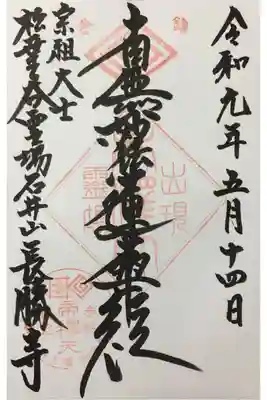 令和元年五月十四日
南無妙法蓮華經
宗祖大士
松葉谷霊場石井山長勝寺
出現
靈場
帝釋天